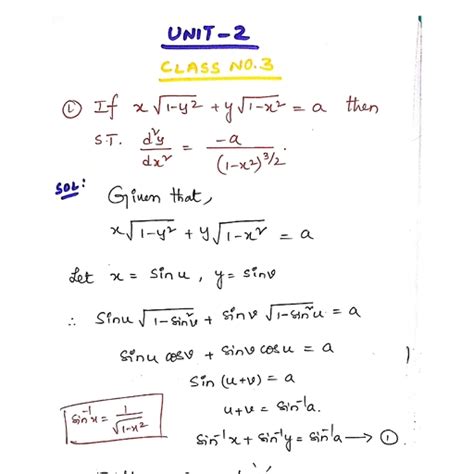 UNIT-2
CLASS NO.3
① If x√1-y² + y√1-x² = a then
S.T. d²y/dx² = -a/(1-x²)^3/2.
SOL: Given that,
x√1-y² + y√1-x² = a
Let x = sinu, y = sinv
∴ Sinu√1-sin²v + sinv√1-sin²u = a
sinu cosv + sinv cosu = a
Sin (u+v) = a
u+v = sin⁻¹a.
sin⁻¹x = 1/√1-x²
sin⁻¹x + sin⁻¹y = sin⁻¹a → ①